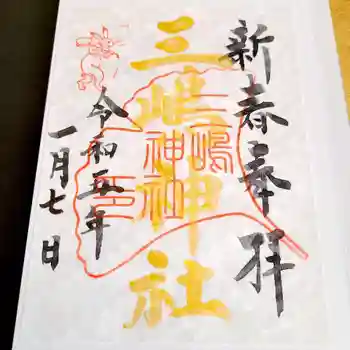 新春奉拝
三嶋神社
三嶋神社
令和五年
一月七日